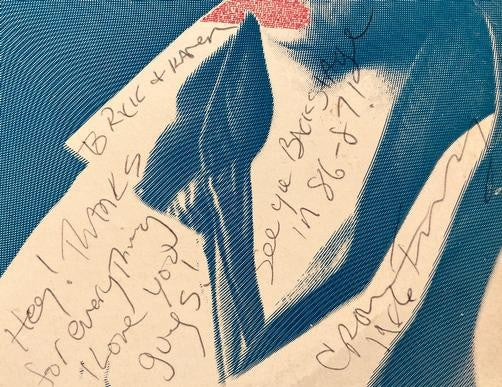 To RICK & KAREN
Hey! THANKS
for everything
I Love you
guys!
See you BACKSTAGE
in 86-87!